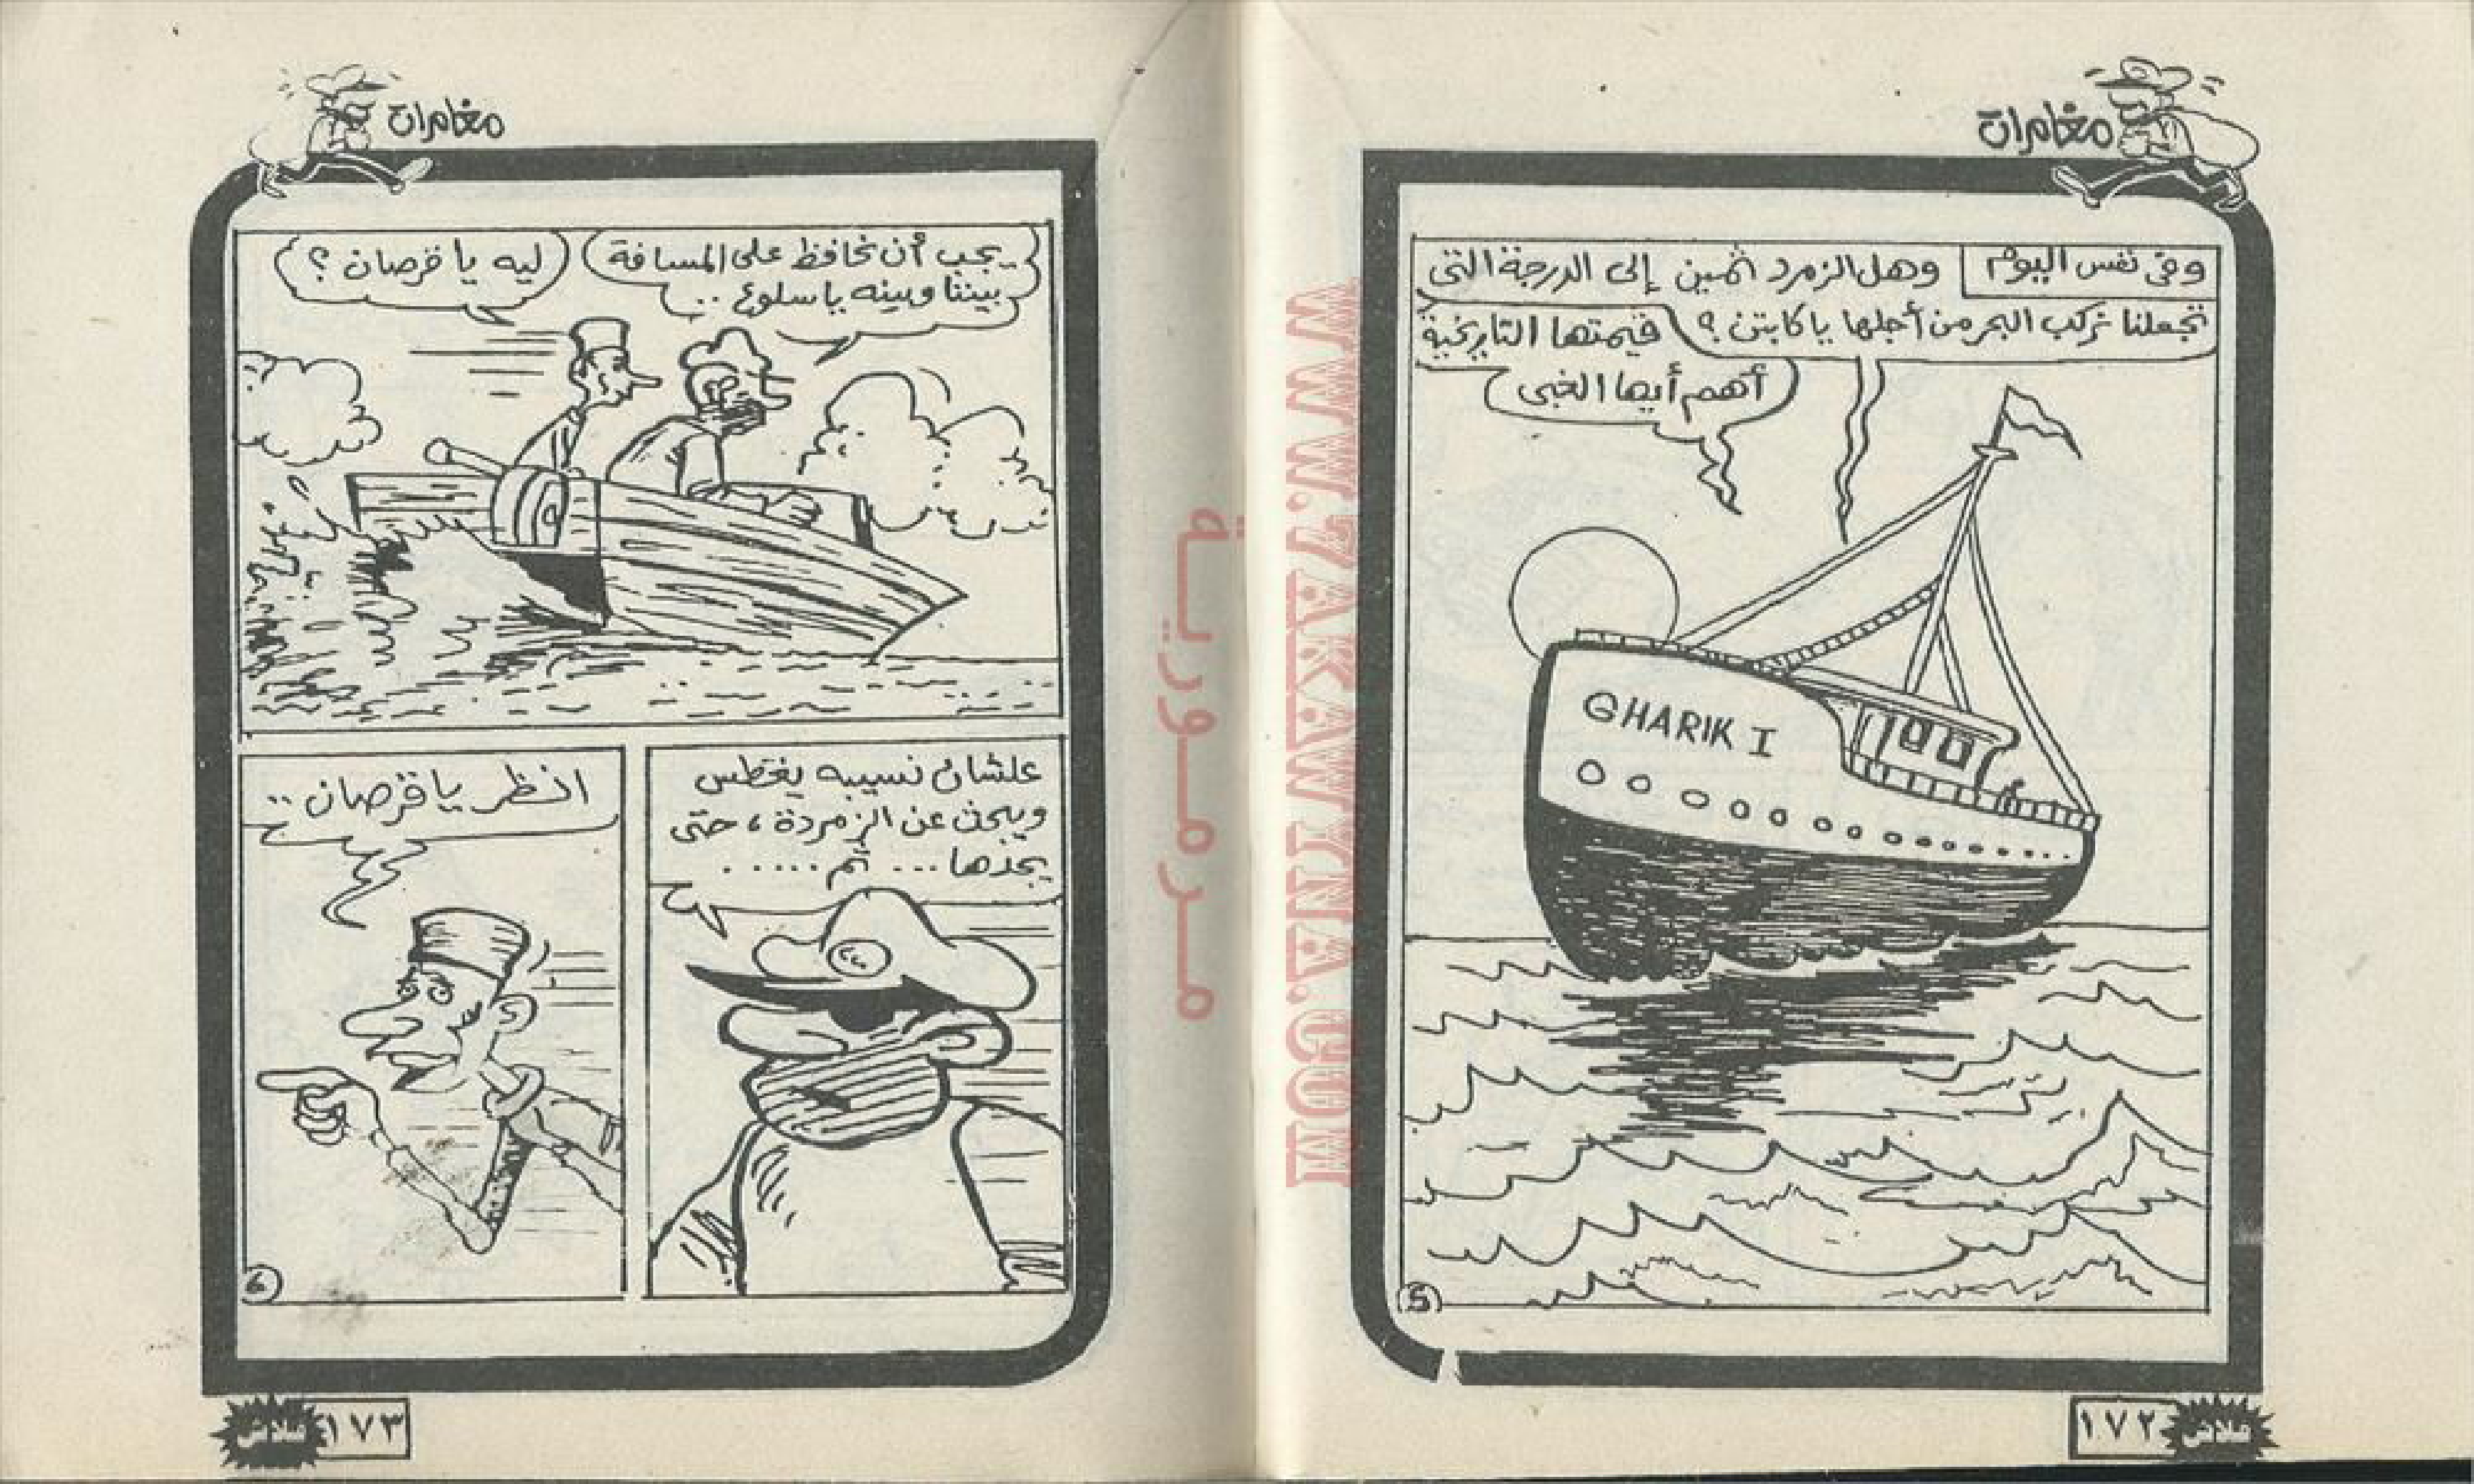 مغامرات
وفى نفس اليوم
وهل الزمرد ثمين إلى الدرجة التى
تجعلنا نركب البحر من أجلها يا كابتن ؟
قيمتها التاريخية
أهم أيها الغبى
GHARIK I
5
١٧٢
فلاش
مغامرات
يجب أن نحافظ على المسافة
بيننا وبينه يا سلوع ..
ليه يا قرصان ؟
علشان نسيبه يغطس
ويبحث عن الزمردة ، حتى
يجدها ... ثم .....
انظر يا قرصان ..
6
١٧٣
فلاش
مرمورية
WWW.ZAKAWINA.COM